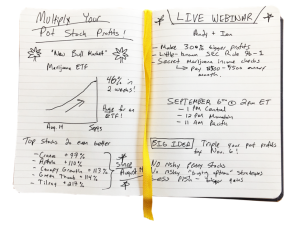 Multiply Your
Pot Stock Profits!
"New Bull Market"
Marijuana ETF
46% in
2 weeks!
Huge for an
ETF!
Aug. 14
Sept 5
Top Stocks do even better
- Cronos + 97%
- Aphria + 110%
- Canopy Growth + 113%
- Green Thumb + 114%
- Tilray + 219%
Since
August 14
LIVE WEBINAR
Andy + Ian
- Make 300% bigger profits
- Little-known SEC Rule
- Secret Marijuana income checks
SEPTEMBER 6th @ 2pm ET
- 1 PM Central
- 12 PM Mountain
- 11 AM Pacific
BIG IDEA! Triple your pot profits
by Nov. 6!
No risky penny stocks
No risky "buying options" strategies